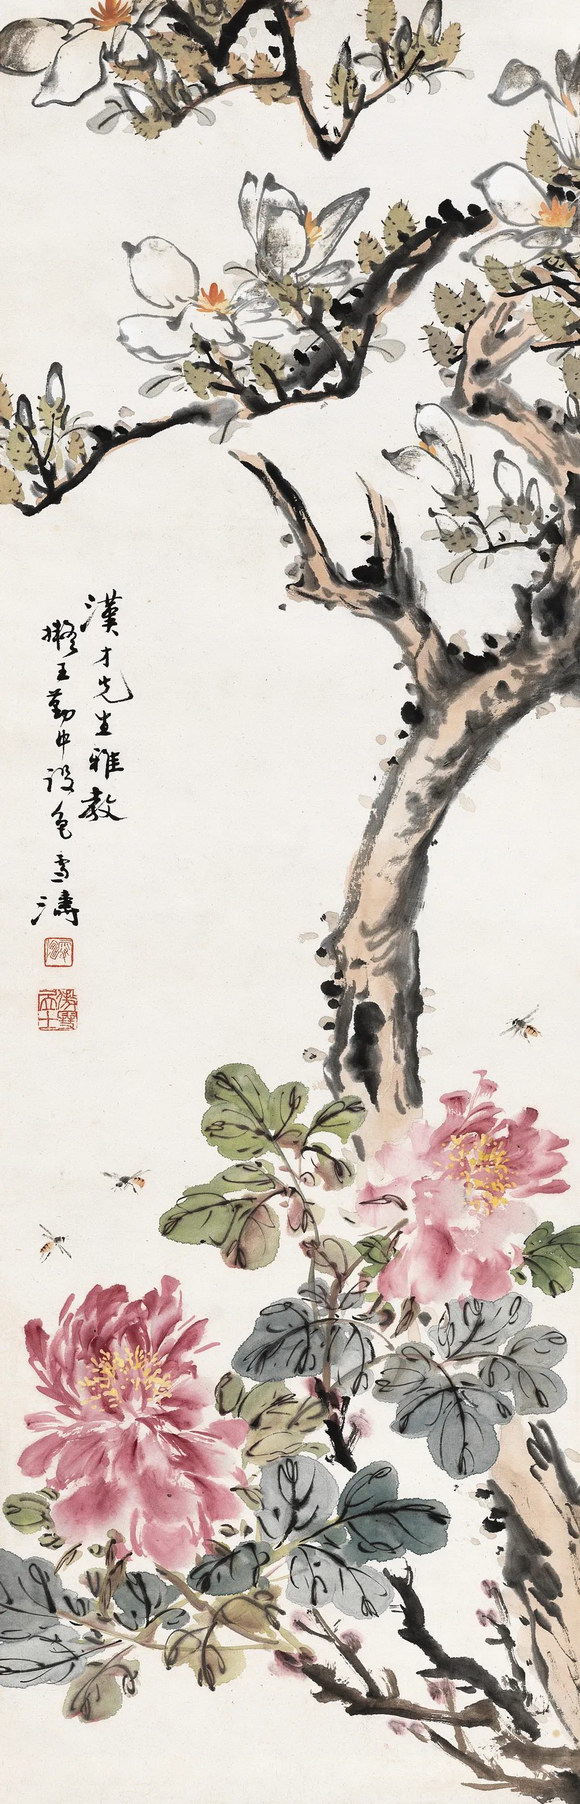 漢才先生雅教
擬王勤中設色雪濤